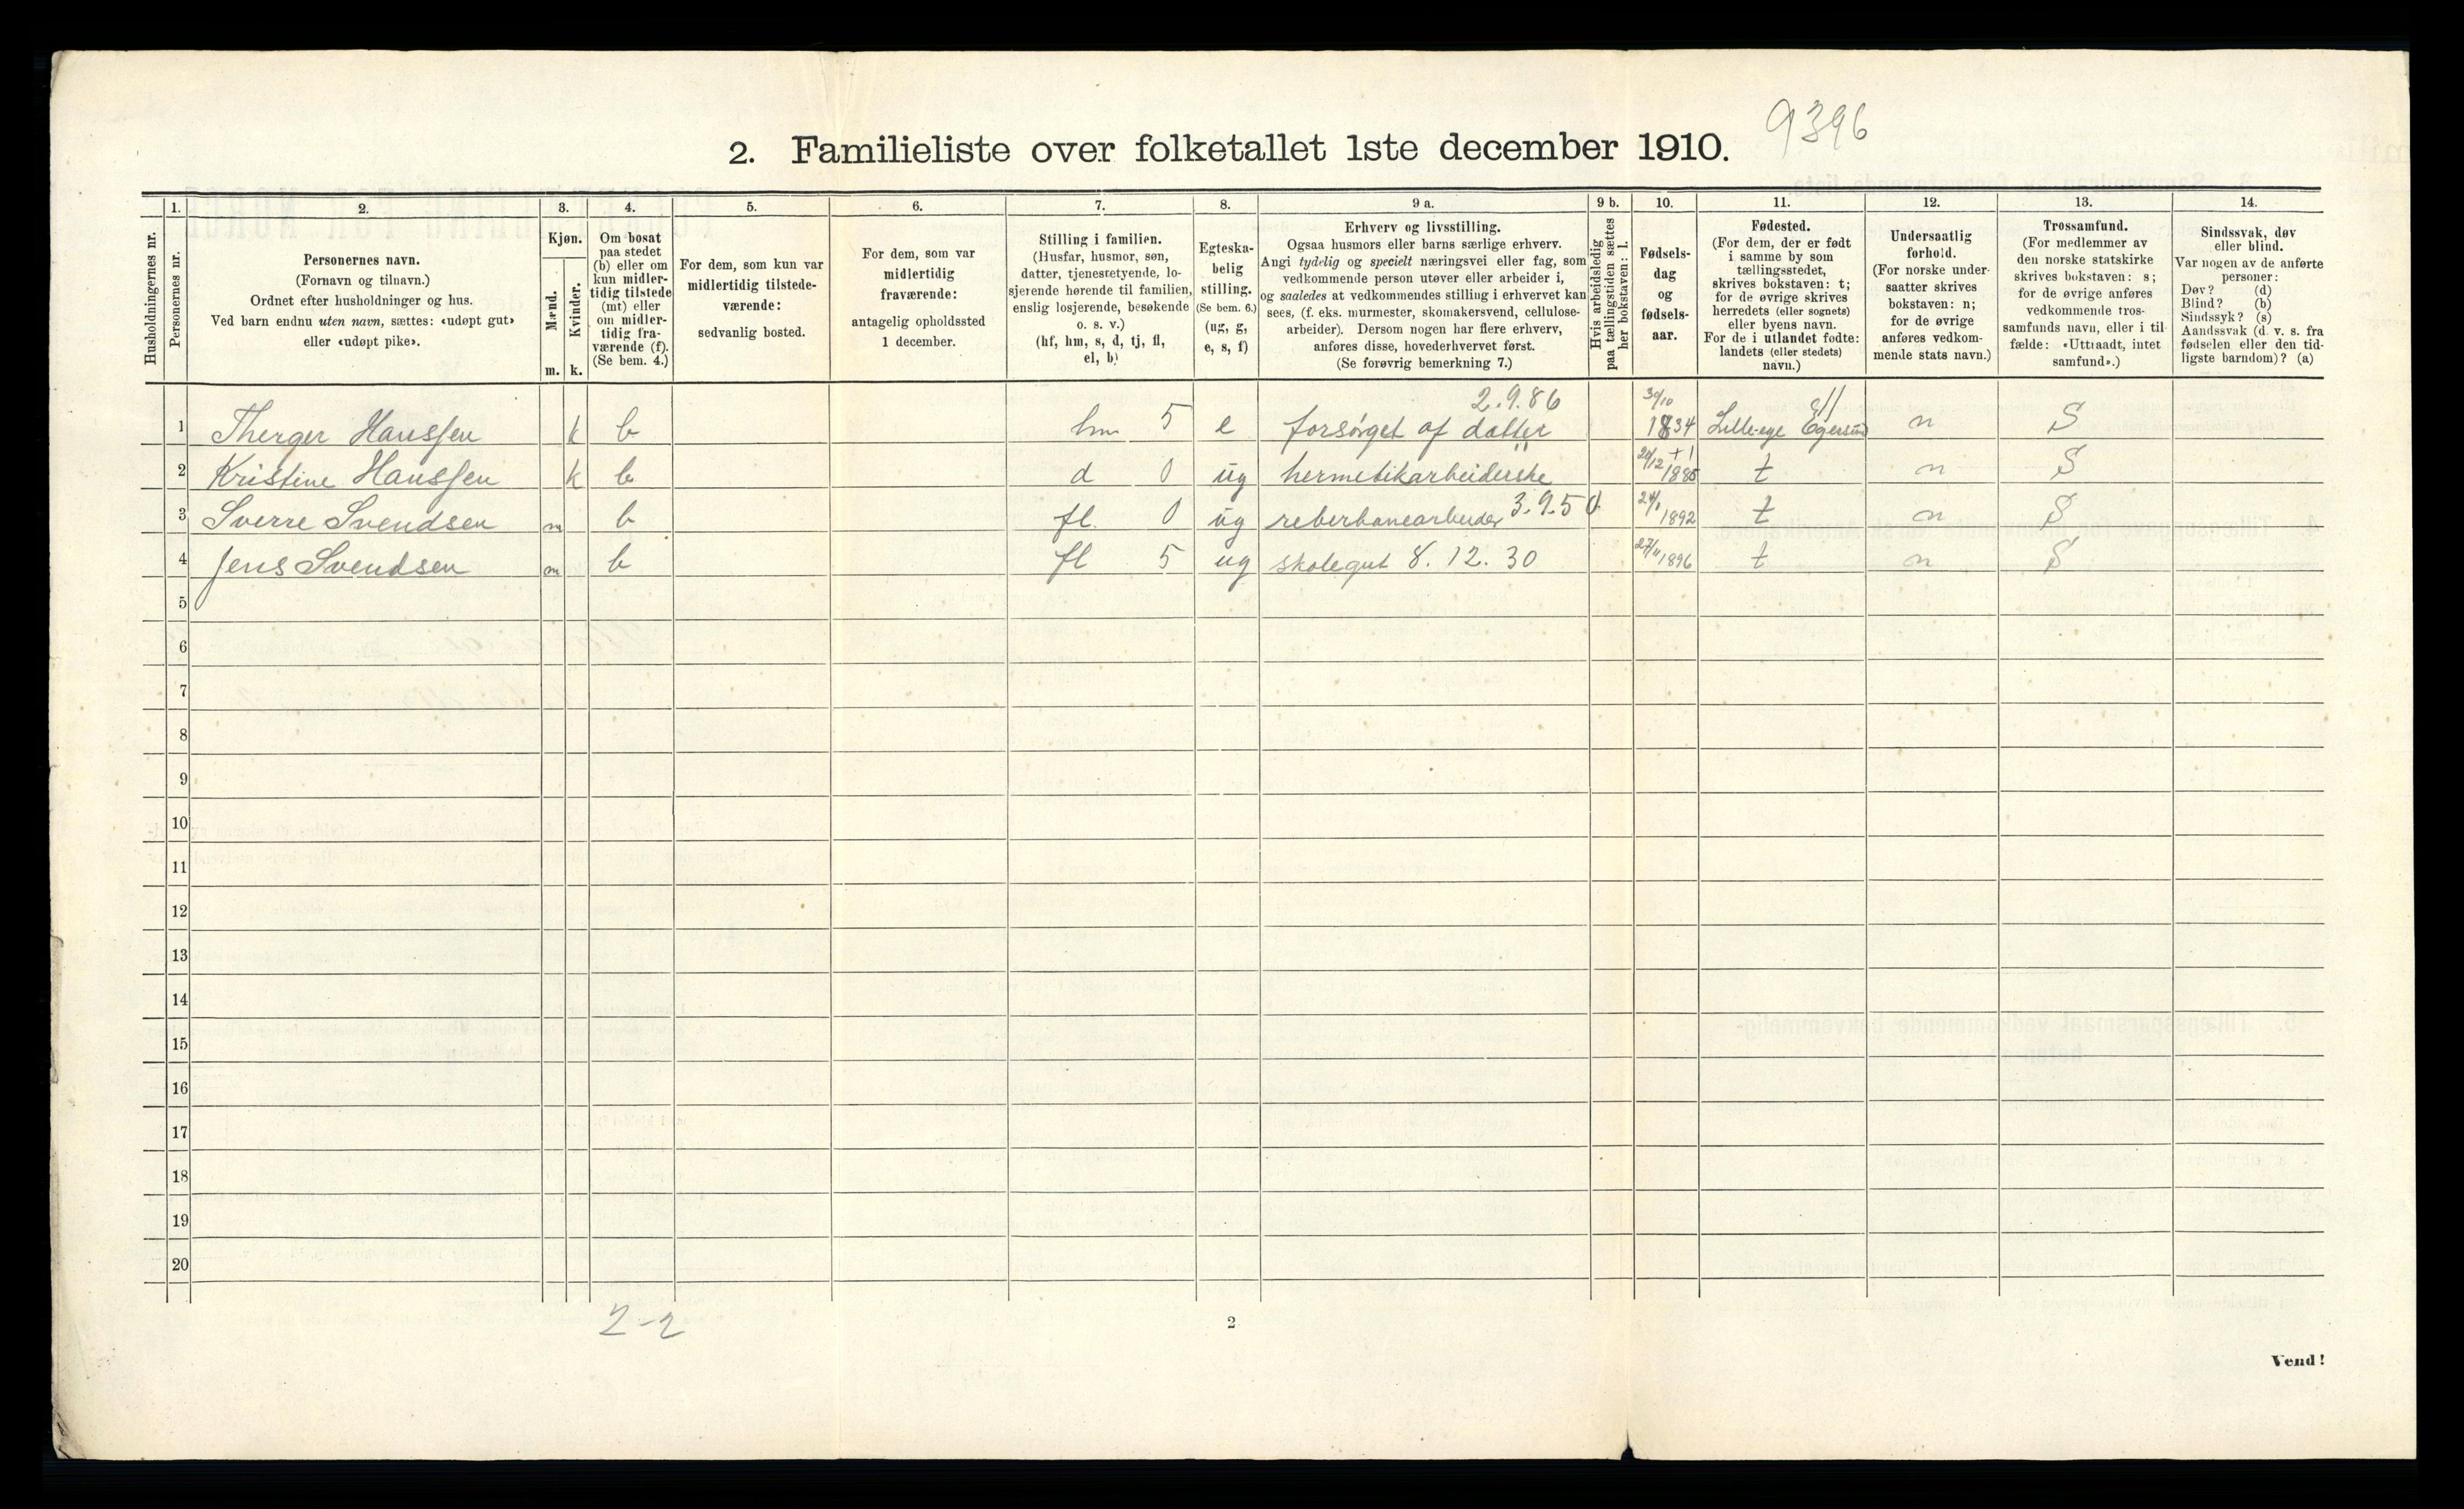 9396
2. Familieliste over folketallet 1ste december 1910.
Husholdningernes nr.
1.
Personernes nr.
2.
Personernes navn.
(Fornavn og tilnavn.)
Ordnet efter husholdninger og hus.
Ved barn endnu uten navn, sættes: «udøpt gut»
eller «udøpt pike».
3.
Kjøn.
Mænd.
Kvinder.
m. k.
4.
Om bosat
paa stedet
(b) eller om
kun midler-
tidig tilstede
(mt) eller
om midler-
tidig fra-
værende (f).
(Se bem. 4.)
5.
For dem, som kun var
midlertidig tilstede-
værende:
sedvanlig bosted.
6.
For dem, som var
midlertidig
fraværende:
antagelig opholdssted
1 december.
7.
Stilling i familien.
(Husfar, husmor, søn,
datter, tjenestetyende, lo-
sjerende hørende til familien,
enslig losjerende, besøkende
o. s. v.)
(hf, hm, s, d, tj, fl,
el, b)
8.
Egteska-
belig
stilling.
(Se bem. 6.)
(ug, g,
e, s, f)
9 a.
Erhverv og livsstilling.
Ogsaa husmors eller barns særlige erhverv.
Angi tydelig og specielt næringsvei eller fag, som
vedkommende person utøver eller arbeider i,
og saaledes at vedkommendes stilling i erhvervet kan
sees, (f. eks. murmester, skomakersvend, cellulose-
arbeider). Dersom nogen har flere erhverv,
anføres disse, hovederhvervet først.
(Se forøvrig bemerkning 7.)
9 b.
Hvis arbeidsledig
paa tællingstiden sættes
her bokstaven: l.
10.
Fødsels-
dag
og
fødsels-
aar.
11.
Fødested.
(For dem, der er født
i samme by som
tællingsstedet,
skrives bokstaven: t;
for de øvrige skrives
herredets (eller sognets)
eller byens navn.
For de i utlandet fødte:
landets (eller stedets)
navn.)
12.
Undersaatlig
forhold.
(For norske under-
saatter skrives
bokstaven: n;
for de øvrige
anføres vedkom-
mende stats navn.)
13.
Trossamfund.
(For medlemmer av
den norske statskirke
skrives bokstaven: s;
for de øvrige anføres
vedkommende tros-
samfunds navn, eller i til-
fælde: «Uttraadt, intet
samfund».)
14.
Sindssvak, døv
eller blind.
Var nogen av de anførte
personer:
Døv? (d)
Blind? (b)
Sindssyk? (s)
Aandssvak (d. v. s. fra
fødselen eller den tid-
ligste barndom)? (a)
2.9.86
1 Therger Hanssen k b hm 5 e forsørget af datter 30/10 1834 Lille-eye Egersund n S
2 Kristine Hanssen k b d 0 ug hermetikarbeiderske 1885 t n S
3 Sverre Svendsen m b fl. 0 ug reberbanearbeider 3.9.50 1892 t n S
4 Jens Svendsen m b fl 5 ug skolegut 8. 12. 30 27/11 1896 t n S
5
6
7
8
9
10
11
12
13
14
15
16
17
18
19
20
2-2
2
Vend!